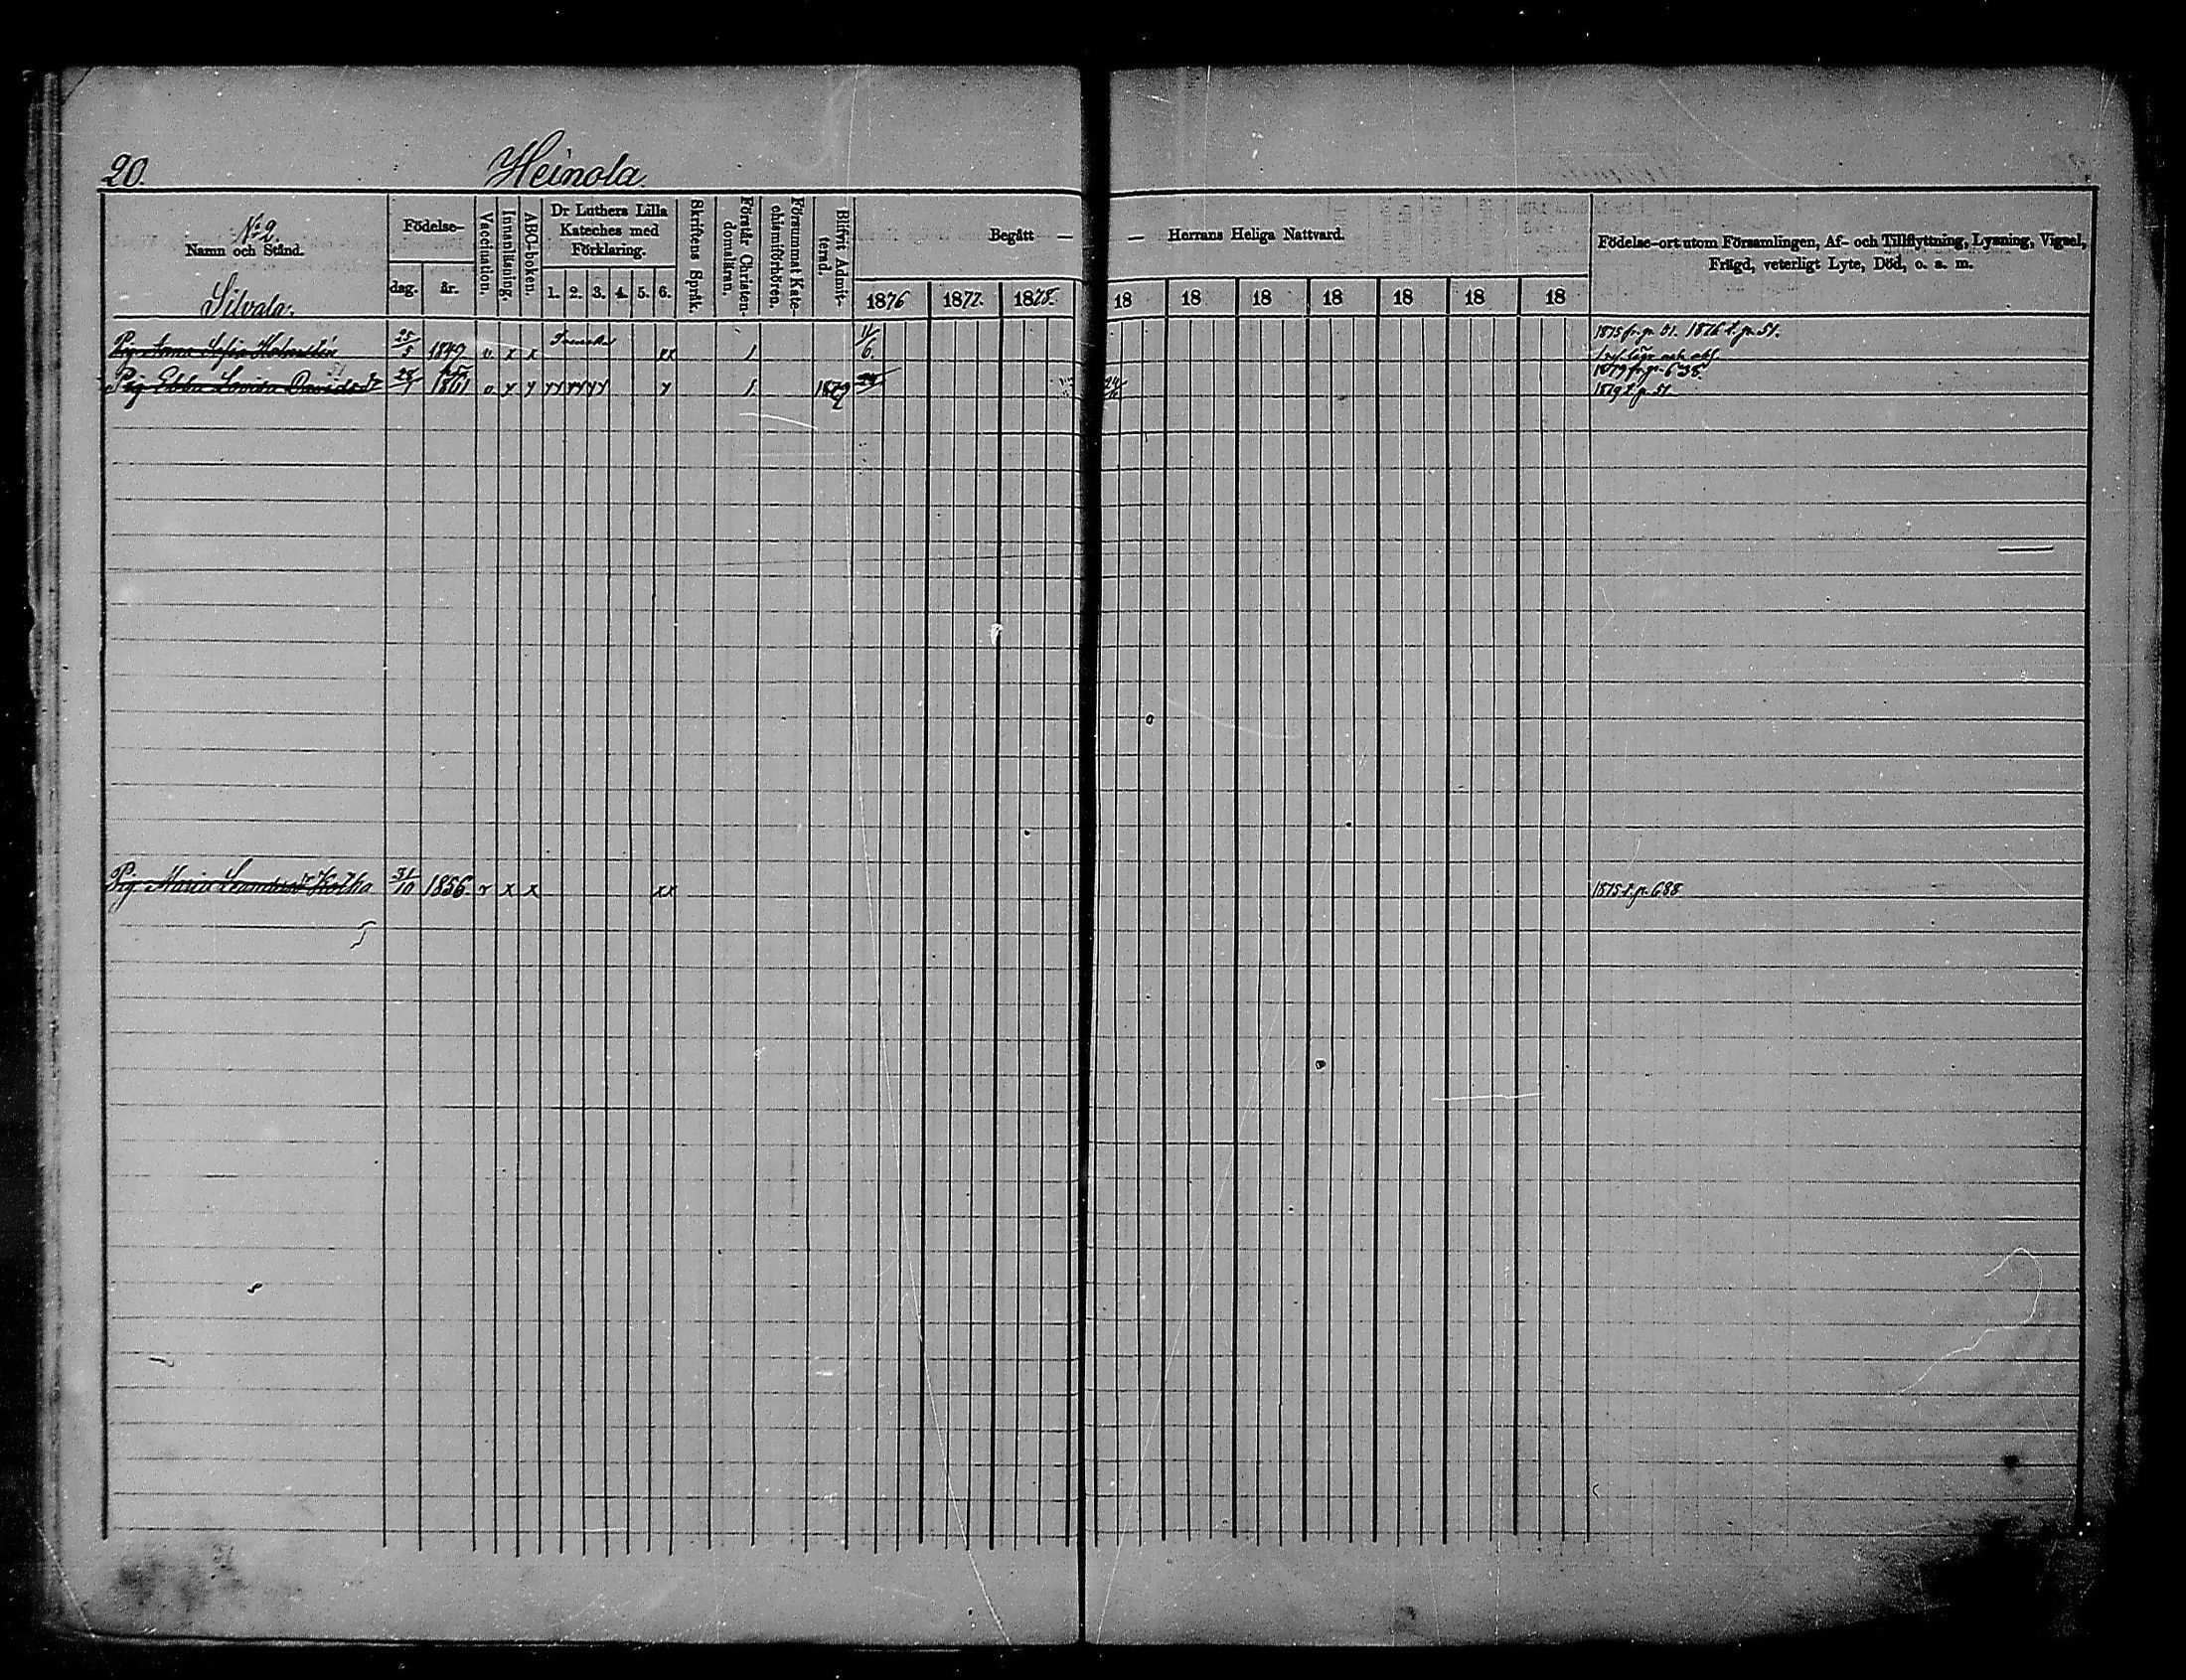 20. Heinola.
No 2.
Namn och Stånd.
Silvala.
Födelse-
dag. år.
Vaccination.
Innanläsning.
ABC-boken.
Dr Luthers Lilla Kateches med Förklaring.
1. 2. 3. 4. 5. 6.
Skriftens Språk.
Förstår Christendomsläran.
Försummat Katechismiförhören.
Blifvit Admitterad.
Begått — — Herrans Heliga Nattvard.
1876 1877. 1878. 18 18 18 18 18 18 18
Födelse-ort utom Församlingen, Af- och Tillflyttning, Lysning, Vigsel,
Frägd, veterligt Lyte, Död, o. s. m.
Pig. Anna Sofia 25/5 1849 v x x xx 1 11/6. 1876 t. p. 51.
Pig Ebba Lovisa Davidsdr 1861 v y y yy yy yy y 1. 1879 1879 t. p. 51.
Pig. Maria Kotka 31/10 1856. v x x xx 1875 t. p. 688